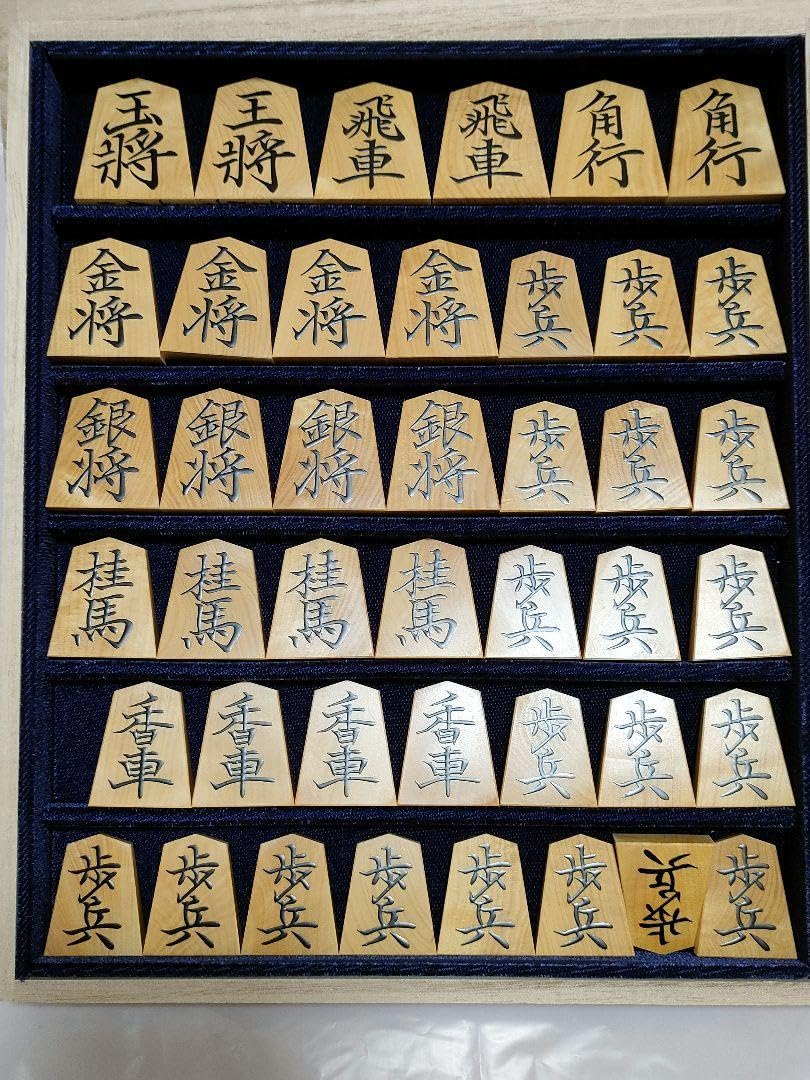 玉將 王將 飛車 飛車 角行 角行
金将 金将 金将 金将 歩兵 歩兵 歩兵
銀将 銀将 銀将 銀将 歩兵 歩兵 歩兵
桂馬 桂馬 桂馬 桂馬 歩兵 歩兵 歩兵
香車 香車 香車 香車 歩兵 歩兵 歩兵
歩兵 歩兵 歩兵 歩兵 歩兵 歩兵 歩兵 歩兵